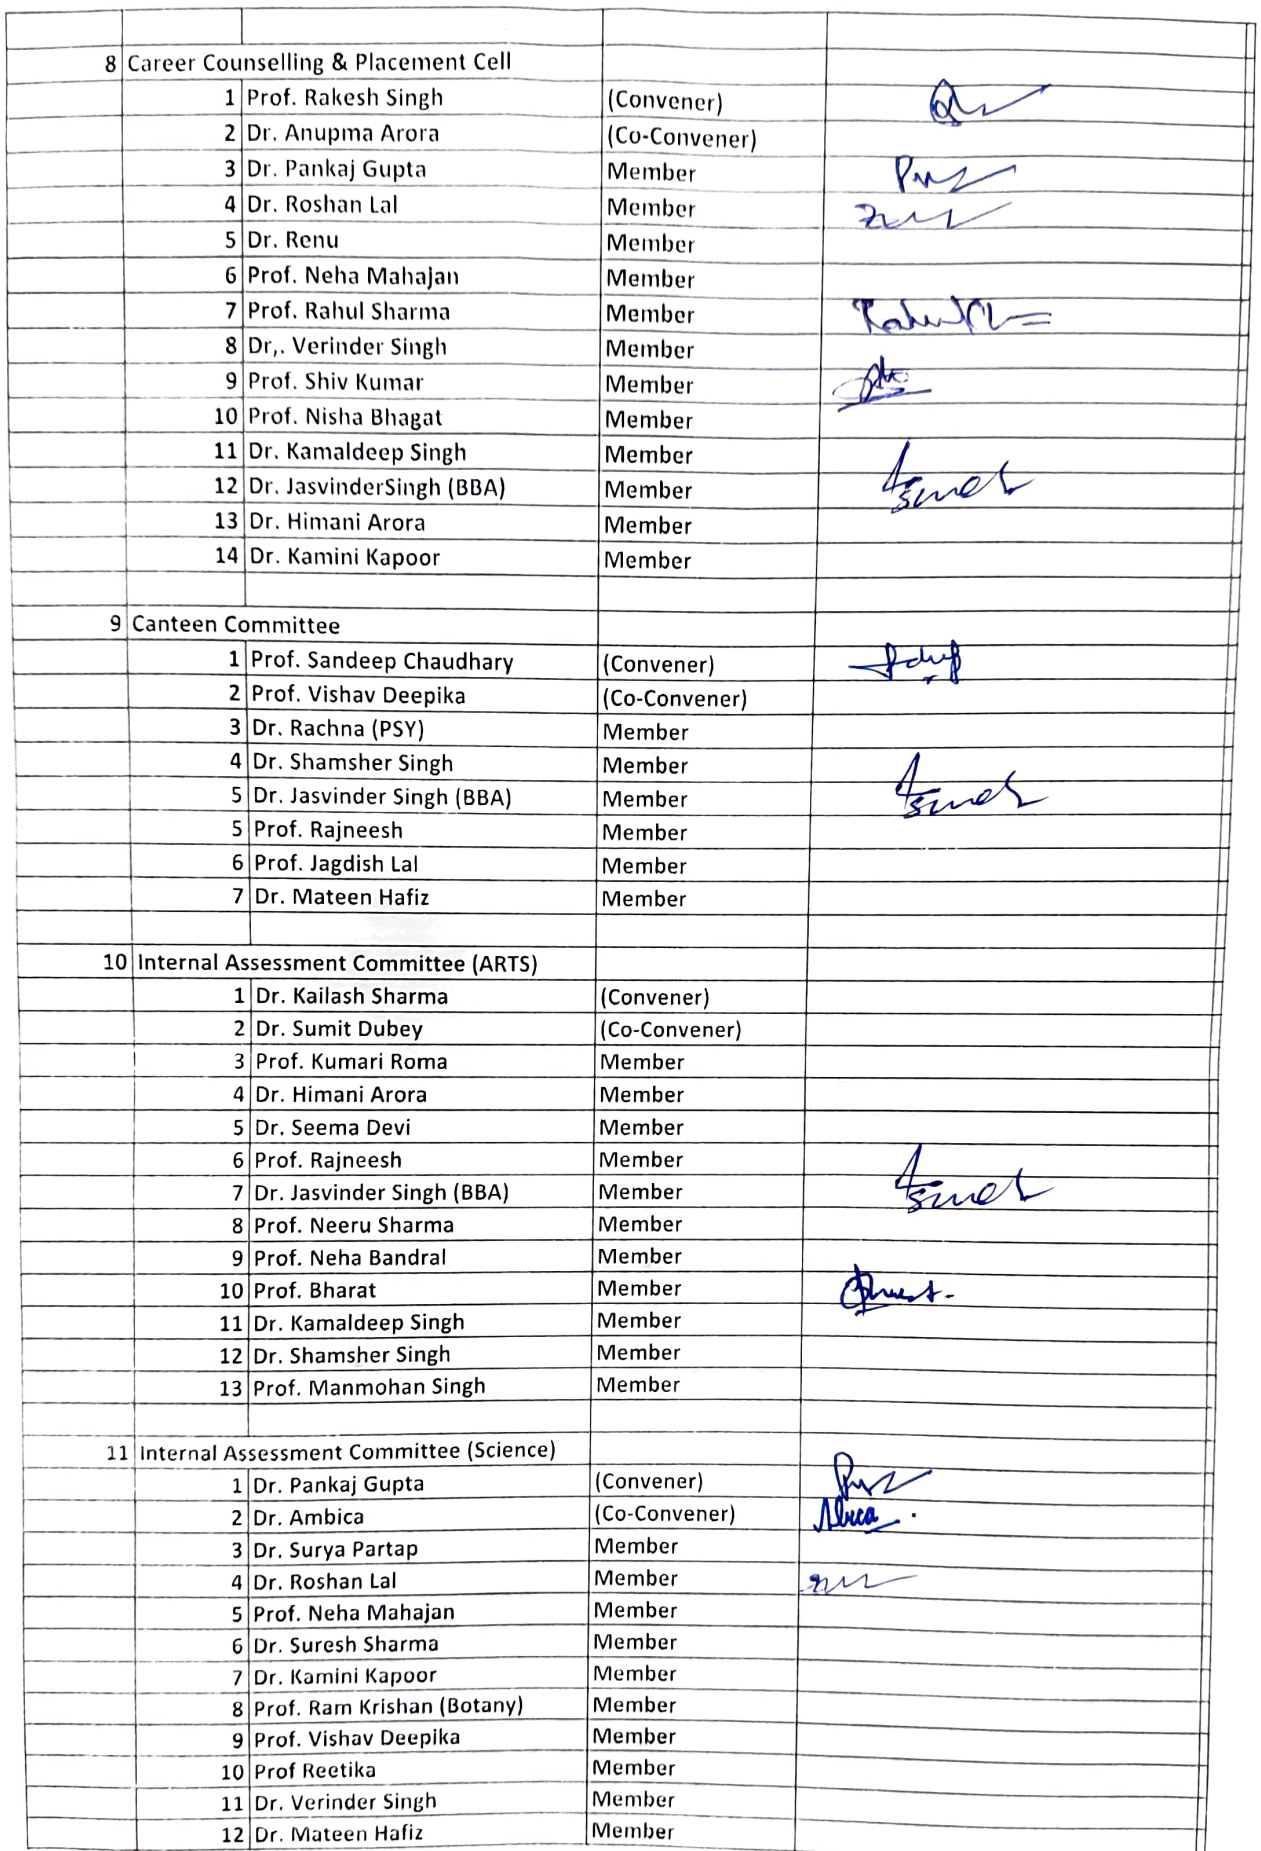 8 Career Counselling & Placement Cell
1 Prof. Rakesh Singh (Convener)
2 Dr. Anupma Arora (Co-Convener)
3 Dr. Pankaj Gupta Member
4 Dr. Roshan Lal Member
5 Dr. Renu Member
6 Prof. Neha Mahajan Member
7 Prof. Rahul Sharma Member
8 Dr,. Verinder Singh Member
9 Prof. Shiv Kumar Member
10 Prof. Nisha Bhagat Member
11 Dr. Kamaldeep Singh Member
12 Dr. JasvinderSingh (BBA) Member
13 Dr. Himani Arora Member
14 Dr. Kamini Kapoor Member
9 Canteen Committee
1 Prof. Sandeep Chaudhary (Convener)
2 Prof. Vishav Deepika (Co-Convener)
3 Dr. Rachna (PSY) Member
4 Dr. Shamsher Singh Member
5 Dr. Jasvinder Singh (BBA) Member
5 Prof. Rajneesh Member
6 Prof. Jagdish Lal Member
7 Dr. Mateen Hafiz Member
10 Internal Assessment Committee (ARTS)
1 Dr. Kailash Sharma (Convener)
2 Dr. Sumit Dubey (Co-Convener)
3 Prof. Kumari Roma Member
4 Dr. Himani Arora Member
5 Dr. Seema Devi Member
6 Prof. Rajneesh Member
7 Dr. Jasvinder Singh (BBA) Member
8 Prof. Neeru Sharma Member
9 Prof. Neha Bandral Member
10 Prof. Bharat Member
11 Dr. Kamaldeep Singh Member
12 Dr. Shamsher Singh Member
13 Prof. Manmohan Singh Member
11 Internal Assessment Committee (Science)
1 Dr. Pankaj Gupta (Convener)
2 Dr. Ambica (Co-Convener)
3 Dr. Surya Partap Member
4 Dr. Roshan Lal Member
5 Prof. Neha Mahajan Member
6 Dr. Suresh Sharma Member
7 Dr. Kamini Kapoor Member
8 Prof. Ram Krishan (Botany) Member
9 Prof. Vishav Deepika Member
10 Prof Reetika Member
11 Dr. Verinder Singh Member
12 Dr. Mateen Hafiz Member